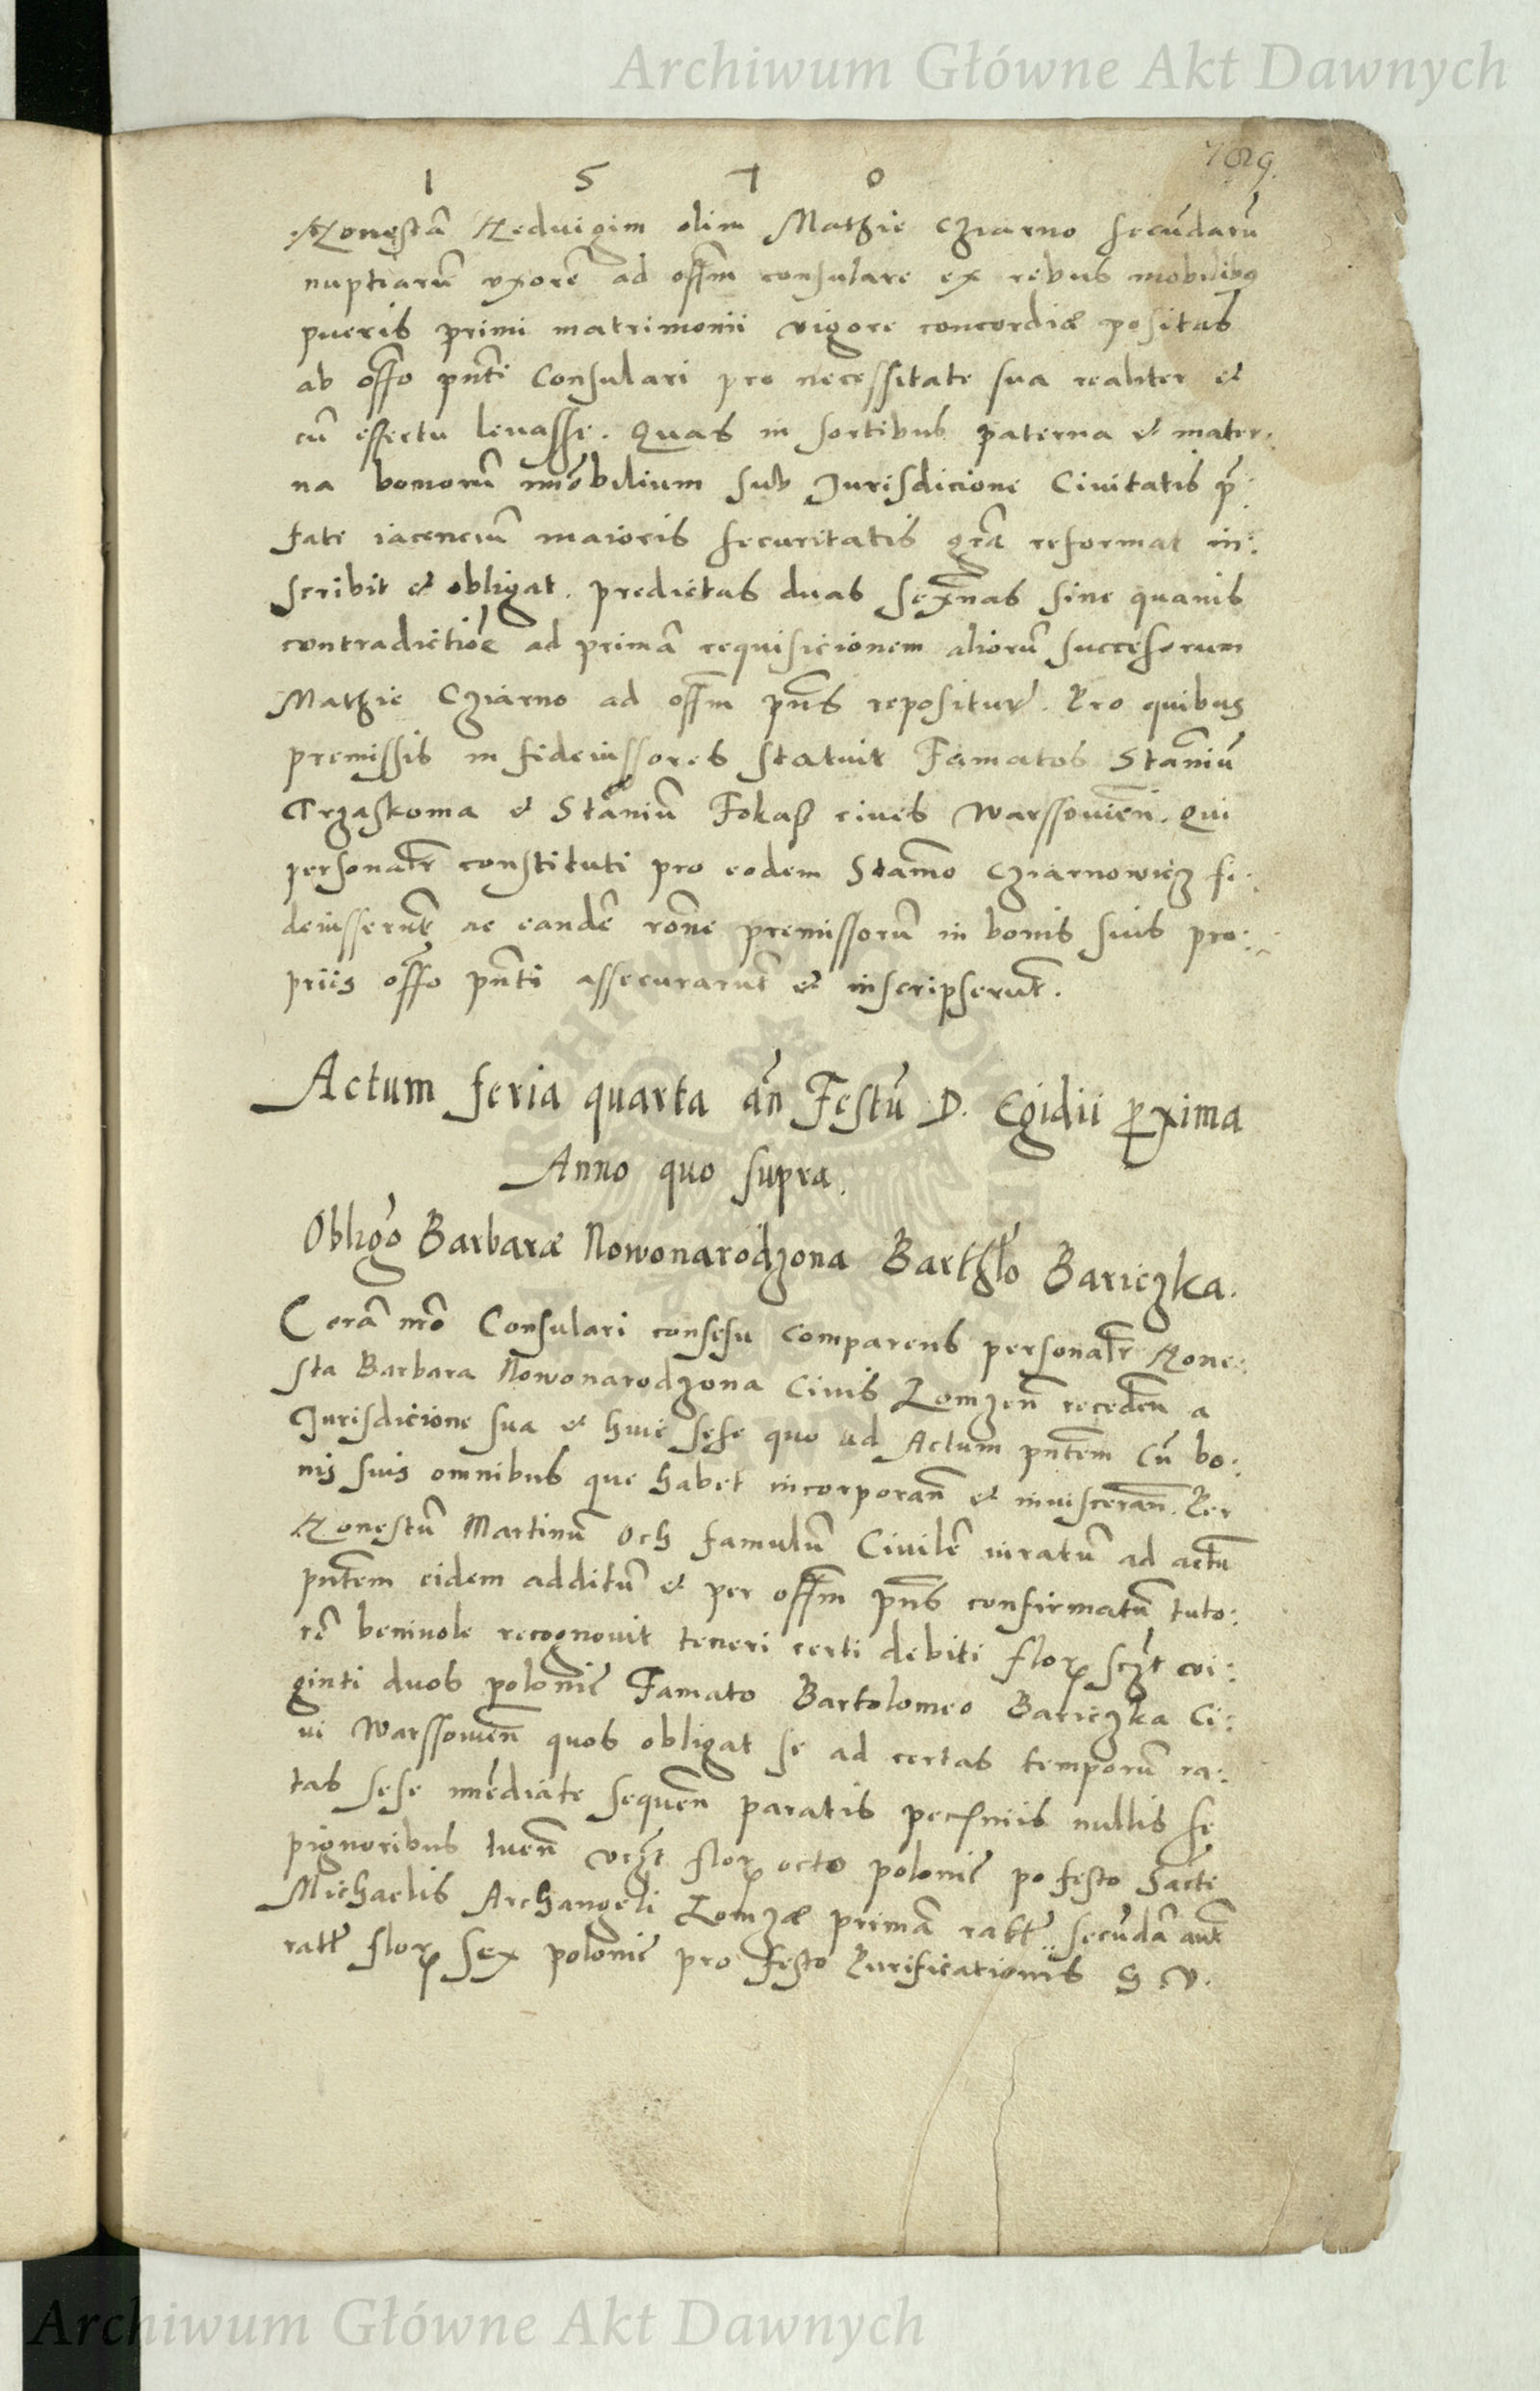 Archiwum Główne Akt Dawnych
1 5 7 0
Honestã Hedvigim olim Mathie Cziarno secũdarũ
nuptiarũ vxorẽ ad offm̃ consulare ex rebus mobilibus
pueris primi matrimonii vigore concordiæ positas
ab offo pnti Consulari pro necessitate sua realiter et
cũ effectu leuasse. Quas in sortibus paterna et mater:
na bonorũ im̃obilium sub Jurisdicione Ciuitatis p̃:
fate iacenciũ maioris securitatis grã reformat in:
scribit et obligat. predictas duas sexñas sine quauis
contradictiõe ad primã requisicionem aliorũ succesorum
Mathie Cziarno ad offm̃ pñs repositur̃. Pro quibus
premissis in fideiussores statuit Famatos Stãniũ
Trzaskoma et Stãniũ Fokass ciues Warssouieñ. Qui
personalr̃ constituti pro eodem Stañio Cziarnowicz fi:
deiusserũt ac eandẽ rõne premissorũ in bonis suis pro:
priis offo pñti assecurarũt et inscripserũt.
Actum feria quarta añ Festũ D. Egidii proxima
Anno quo supra.
Obligõ Barbaræ Nowonarodzona Barthlõ Bariczka.
Corã nr̃o Consulari consesu comparens personalr̃ Hone:
sta Barbara Nowonarodzona Ciuis Lomzeñ recedeñ a
Jurisdicione sua et huic sese quo ad Actum pñtem cũ bo:
nis suis omnibus que habet incorporañ et inuisceran̄. Per
Honestũ Martinũ Och famulũ Ciuilẽ iuratũ ad actũ
pñtem eidem additũ et per offm̃ pñs confirmatũ tuto:
rẽ beniuole recognouit teneri certi debiti flor sczt vi:
ginti duos polonic̃ Famato Bartolomeo Bariczka Ci:
ui Warssouieñ quos obligat se ad certas temporũ ra:
tas sese im̃ediate sequeñ paratis pecuniis nullis se
pignoribus tueñ vczt flor octo polonic̃ po festo Sacti
Michaelis Archangeli Lomzæ primã ratt̃ secũdã aut̃
ratt̃ flor sex polonic̃ pro festo Purificationis S. V.
Archiwum Główne Akt Dawnych